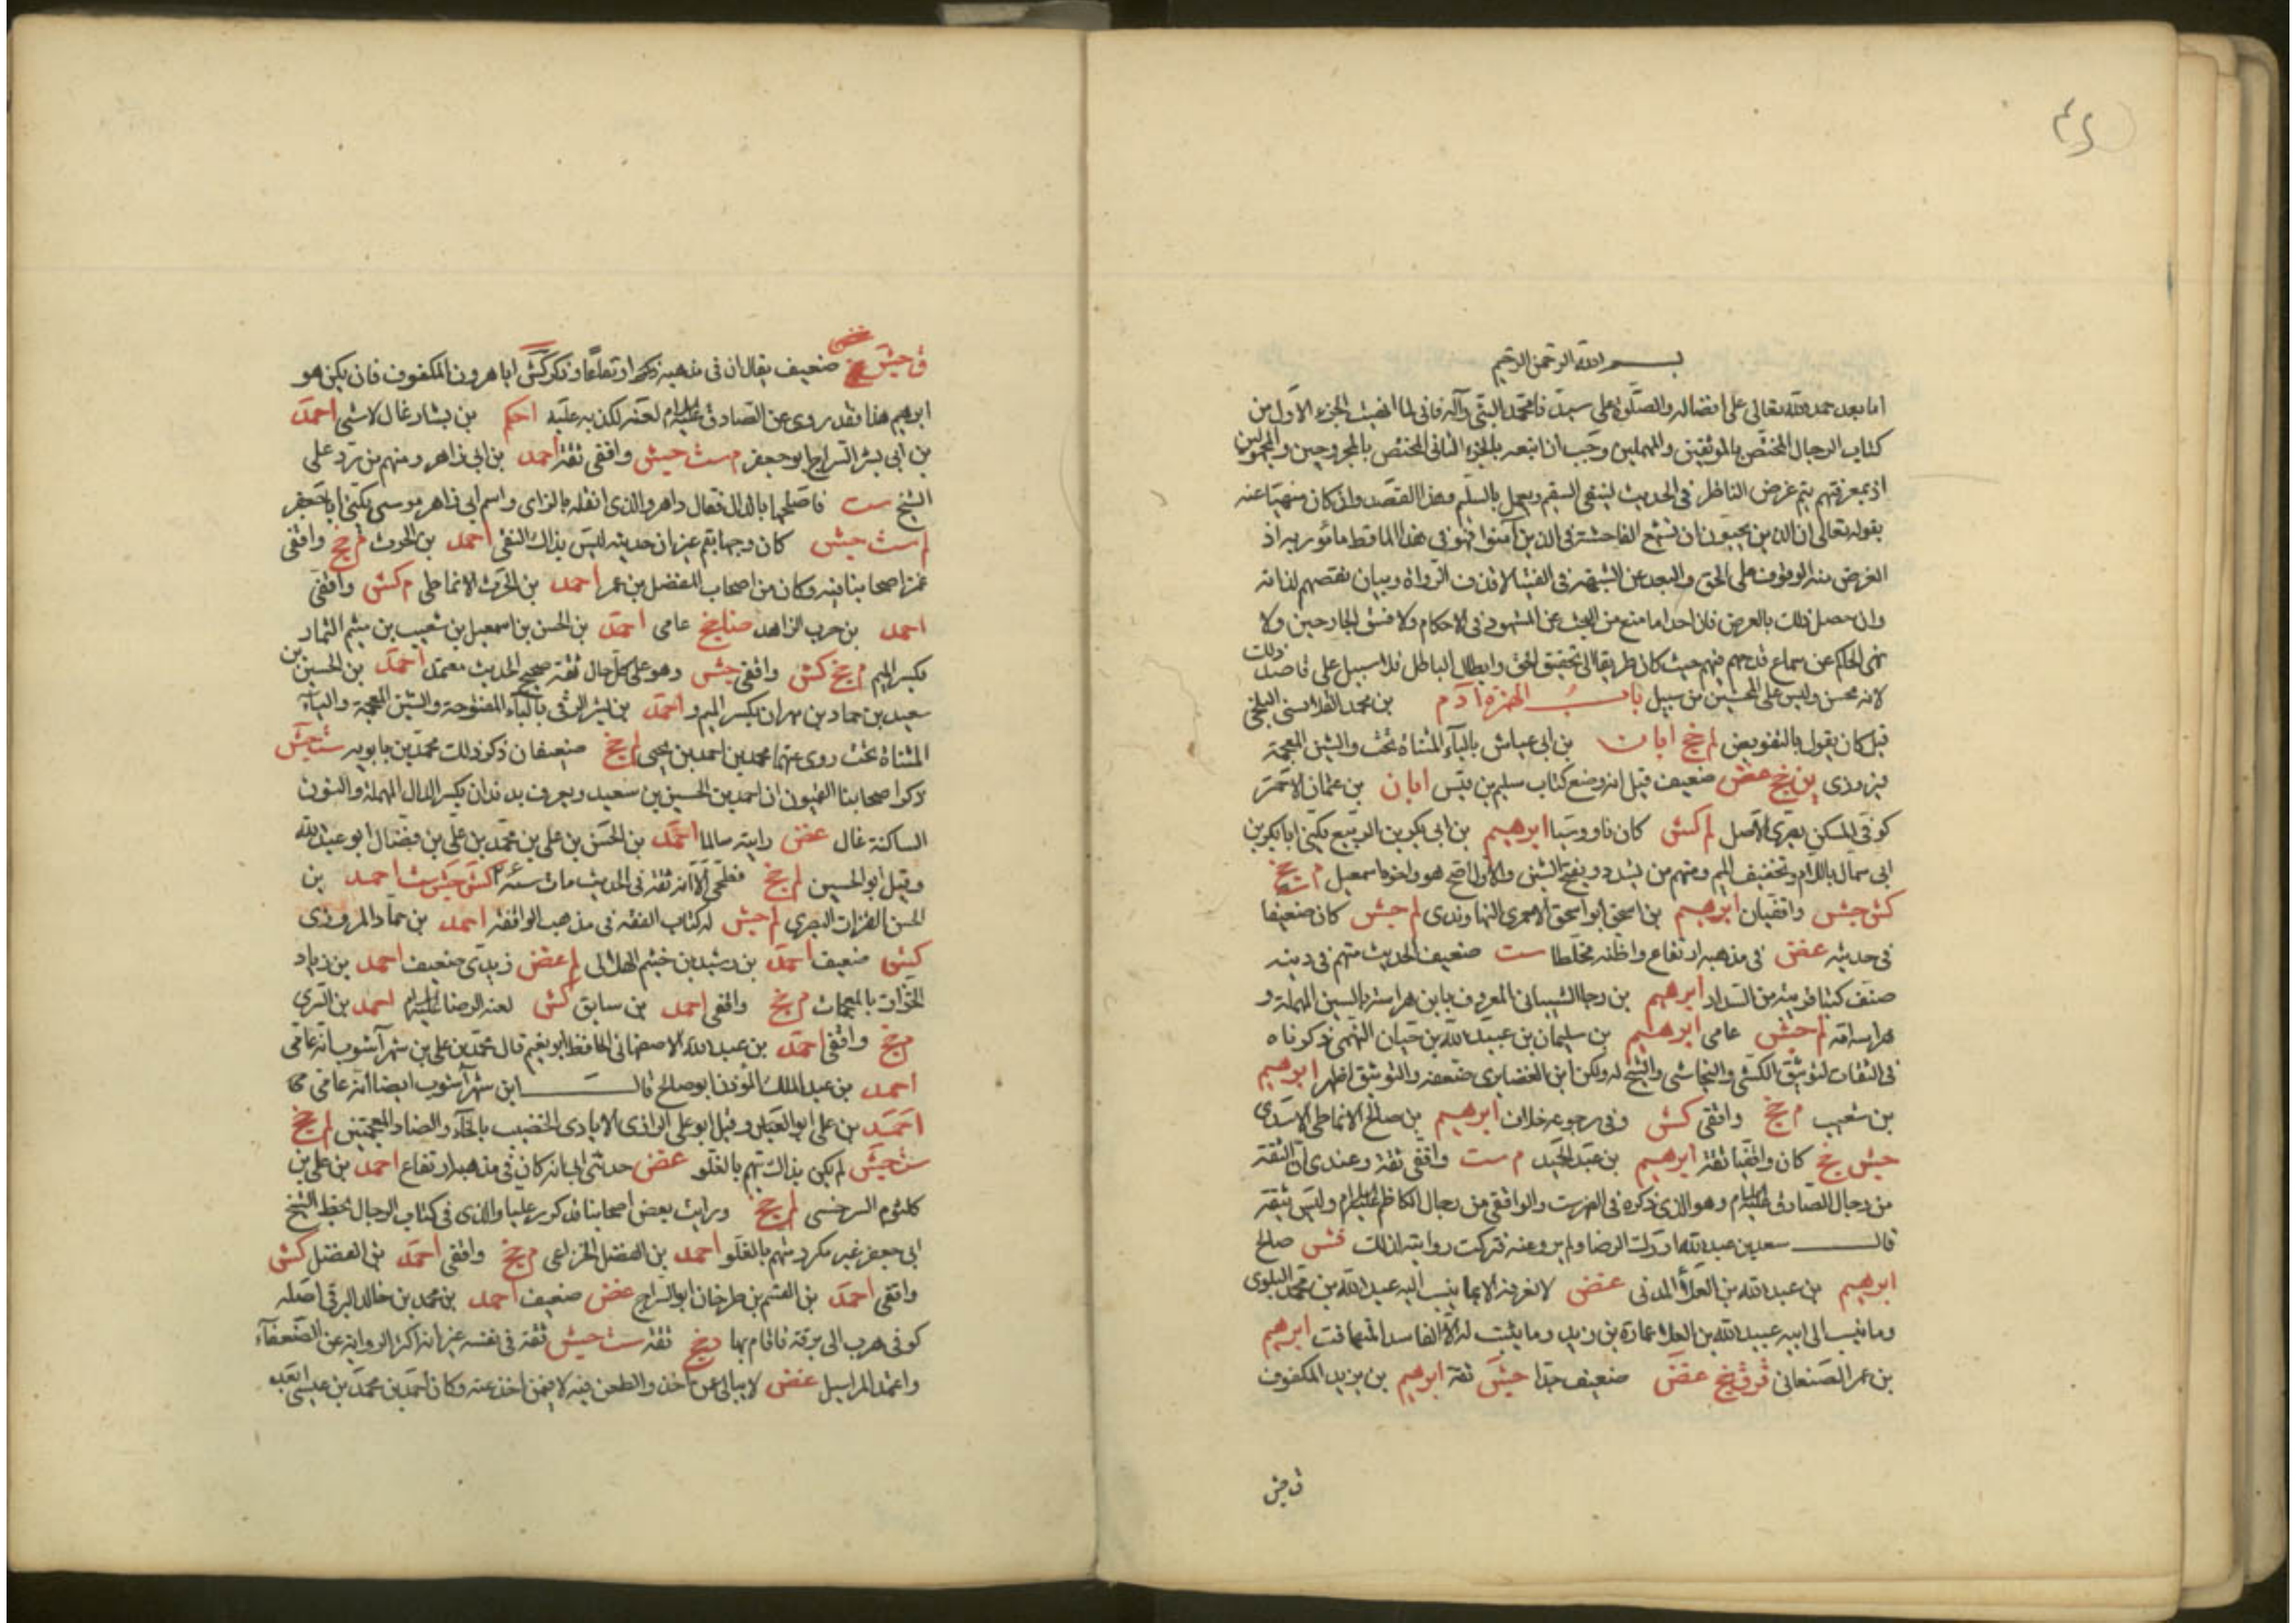 بسم الله الرحمن الرحيم
اما بعد حمد الله تعالى على افضاله والصلوة على سيدنا محمد النبي وآله فاني لما انهيت الجزء الاول من
كتاب الرجال المختص بالموثقين والمهملين وجب ان اتبعه بالجزء الثاني المختص بالمجروحين والمجهولين
اذ بمعرفتهم يتم غرض الناظر في الحديث لينفي السقيم ويعمل بالسليم وهذا القصد وان كان منهيا عنه
بقوله تعالى ان الذين يحبون ان تشيع الفاحشة في الذين آمنوا فهو في هذا المأقط مأمور به اذ
الغرض منه الوقوف على الحق والبعد عن الشبهة في الفتيا لا قذف الرواة وبيان نقصهم لذاته
وان حصل ذلك بالعرض فان احدا ما منع من البحث عن الشهود في الاحكام ولا فسق الجارحين ولا
نهى الحاكم عن سماع قدحهم فيهم حيث كان طريقا الى تحقيق الحق وابطال الباطل فلا سبيل على قاصد ذلك
لانه محسن وليس على المحسنين من سبيل باب الهمزة آدم بن محمد القلانسي البلخي
قيل كان يقول بالتفويض لم خج ابان بن ابي عياش بالياء المثناة تحت والشين المعجمة
فيروزى ين خج غض ضعيف قيل انه وضع كتاب سليم بن قيس ابان بن عثمان الاحمر
كوفي المسكن بصري الاصل لم كش كان ناووسيا ابرهيم بن ابي بكر بن الربيع يكنى ابا بكر بن
ابي سمال باللام وتخفيف الميم ومنهم من يشدد ويفتح السين والاول اصح هو واخوه اسمعيل م خج ست
كش جش واقفيان ابرهيم بن اسحق ابو اسحق الاحمري النهاوندى لم جش كان ضعيفا
في حديثه غض في مذهبه ارتفاع واظنه مخلطا ست ضعيف الحديث متهم في دينه
صنف كتبا قريبة من السداد ابرهيم بن رجا الشيباني المعروف بابن هراسة بالسين المهملة و
هراسة امه لم جش عامى ابرهيم بن سليمان بن عبيد الله بن حيان النهمى ذكرناه
في الثقات لتوثيق الكشي والنجاشي والشيخ له ولكن ابن الغضايرى ضعفه والتوثيق اظهر ابرهيم
بن شعيب م خج واقفى كش وفي رجوعه خلاف ابرهيم بن صالح الانماطى الاسدى
جش خج كان واقفيا ثقة ابرهيم بن عبد الحميد م ست واقفى ثقة وعندى ان الثقة
من رجال الصادق عليه السلام وهو الذى ذكره في الفهرست والواقفى من رجال الكاظم عليه السلام وليس بثقة
قال سعد بن عبد الله ادرك الرضا ولم يرو عنه فتركت روايته لذلك فش صالح
ابرهيم بن عبد الله بن العلاء المدنى غض لا نعرفه الا بما ينسب اليه عبد الله بن محمد البلوى
وما ينسب الى ابيه عبيد الله بن العلا عمارة بن زيد وما يثبت له الا الفاسد المتهافت ابرهيم
بن عمر الصنعانى قر ق خج غض ضعيف جدا جش ثقة ابرهيم بن يزيد المكفوف
ق جش
ق جش خج ضعيف يقال ان في مذهبه ارتفاعا وذكر كش ابا هرون المكفوف فان يكن هو
ابرهيم هذا فقد روى عن الصادق عليه السلام لعنه لكذبه عليه احكم بن بشار غال لا شى احمد
بن ابي بشر السراج ابو جعفر م ست جش واقفى ثقة احمد بن ابي زاهر ومنهم من رد على
الشيخ ست فاصلحها بالدال فقال داهر والذى انقله بالزاى واسم ابي زاهر موسى يكنى ابا جعفر
لم ست جش كان وجها بقم غير ان حديثه ليس بذاك النقى احمد بن الحرث م خج واقفى
غمز اصحابنا فيه وكان من اصحاب المفضل بن عمر احمد بن الحرث الانماطى م كش واقفى
احمد بن حرب الزاهد ضا خج عامى احمد بن الحسن بن اسمعيل بن شعيب بن ميثم التمار
بكسر الميم م خج كش واقفى جش وهو على كل حال ثقة صحيح الحديث معتمد احمد بن الحسين بن
سعيد بن حماد بن مهران بكسر الميم واحمد بن بشير البرقى بالباء المفتوحة والشين المعجمة والياء
المثناة تحت روى عنهما محمد بن احمد بن يحيى لم خج ضعيفان ذكر ذلك محمد بن بابويه ست جش
ذكر اصحابنا القميون ان احمد بن الحسين بن سعيد ويعرف بدندان بكسر الدال المهملة والنون
الساكنة غال غض رايته سالما احمد بن الحسن بن على بن محمد بن على بن فضال ابو عبد الله
وقيل ابو الحسين لم خج فطحى الا انه ثقة في الحديث مات سنة كش جش ست احمد بن
الحسن القزاز البصري لم جش له كتاب الفقه في مذهب الواقفة احمد بن حماد المروزى
كش ضعيف احمد بن رشيد بن خيثم الهلالى لم غض زيدى ضعيف احمد بن زياد
الخزاز بالمعجمات م خج واقفى احمد بن سابق كش لعنه الرضا عليه السلام احمد بن السرى
م خج واقفى احمد بن عبد الله الاصفهانى الحافظ ابو نعيم قال محمد بن على بن شهرآشوب انه عامى
احمد بن عبد الملك المؤذن ابو صالح قال ابن شهرآشوب ايضا انه عامى
احمد بن على ابو العباس وقيل ابو على الرازى الايادى الخضيب بالخاء والضاد المعجمتين لم خج
ست جش لم يكن بذاك يتهم بالغلو غض حدثنى ابى انه كان في مذهبه ارتفاع احمد بن على بن
كلثوم السرخسى لم خج ورايت بعض اصحابنا قد كرر عليا والذى في كتاب الرجال بخط الشيخ
ابى جعفر غير مكرر متهم بالغلو احمد بن الفضل الخزاعى م خج واقفى احمد بن الفضل كش
واقفى احمد بن القسم بن طرخان ابو السراج غض ضعيف احمد بن محمد بن خالد البرقى اصله
كوفى هرب الى برقة فاقام بها د خج ثقة ست جش ثقة في نفسه غير انه اكثر الرواية عن الضعفاء
واعتمد المراسيل غض لا يبالى عمن اخذ والطعن فيه لا فيمن اخذ عنه وكان احمد بن محمد بن عيسى ابعده